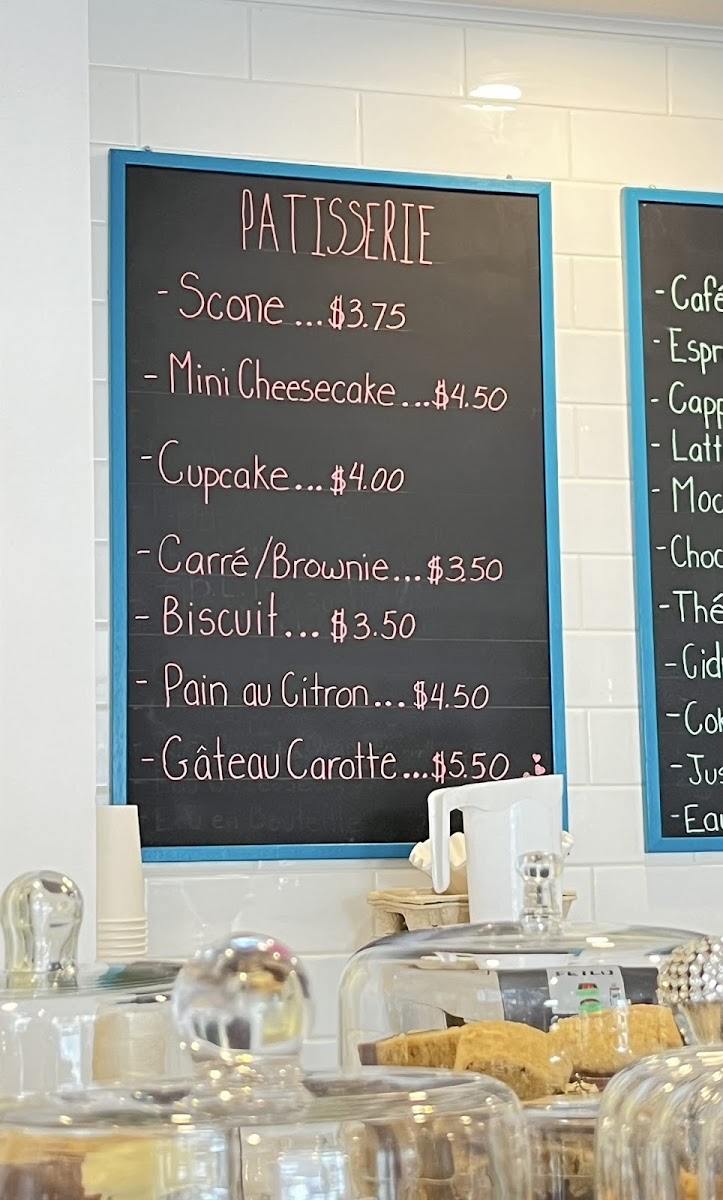 PATISSERIE
- Scone ... $3.75
- Mini Cheesecake ... $4.50
- Cupcake ... $4.00
- Carré / Brownie ... $3.50
- Biscuit ... $3.50
- Pain au Citron ... $4.50
- Gâteau Carotte ... $5.50
- Café
- Espr
- Capp
- Latt
- Moc
- Choc
- Thé
- Cid
- Cok
- Jus
- Eau